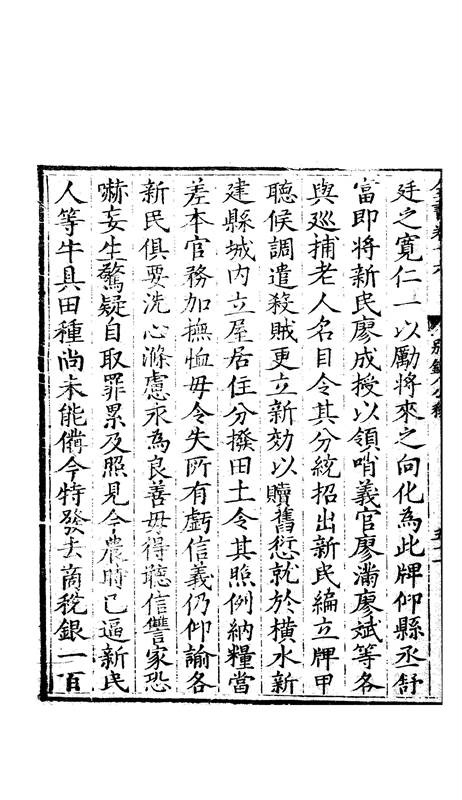 廷之寬仁一以勵將來之向化為此牌仰縣丞舒
富即將新民廖成授以領哨義官廖滿廖斌等各
與廵捕老人名目令其分統招出新民編立牌甲
聽候調遣殺賊更立新効以贖舊愆就於橫水新
建縣城內立屋居住分撥田土令其照例納糧當
差本官務加撫恤毋令失所有虧信義仍仰諭各
新民俱要洗心滌慮永為良善毋得聽信讐家恐
嚇妄生驚疑自取罪累及照見今農時已逼新民
人等牛具田種尚未能備今特發去商稅銀一百